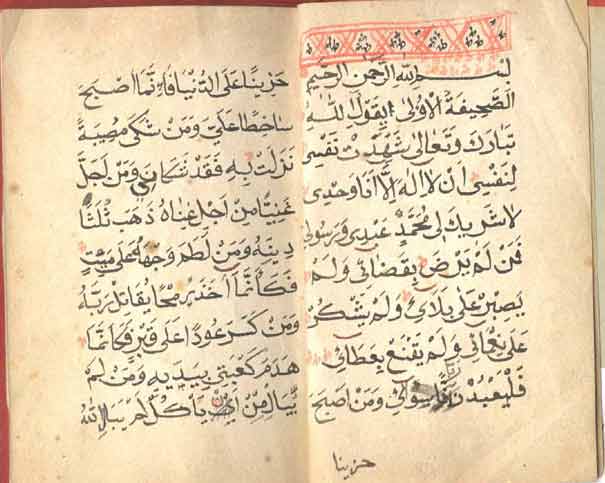 بسم الله الرحمن الرحيم
الصحيفة الاولى يقول الله
تبارك وتعالى شهدت نفسي
لنفسي ان لا اله الا انا وحدي
لا شريك لي محمد عبدي ورسولي
فمن لم يرض بقضائي ولم
يصبر على بلائي ولم يشكر
على نعمائي ولم يقنع بعطائي
فليعبد ربا سوائي ومن اصبح
حزينا
حزينا على الدنيا فانما اصبح
ساخطا علي ومن شكى مصيبة
نزلت به فقد شكاني ومن اجل
غنيا من اجل غناه ذهب ثلثا
دينه ومن لطم وجهه على ميت
فكانما اخذ رمحا يقاتل ربه
ومن كسر عودا على قبر فكانما
هدم كعبتي بيديه ومن لم
يبال من اين ياكل لم يبال الله